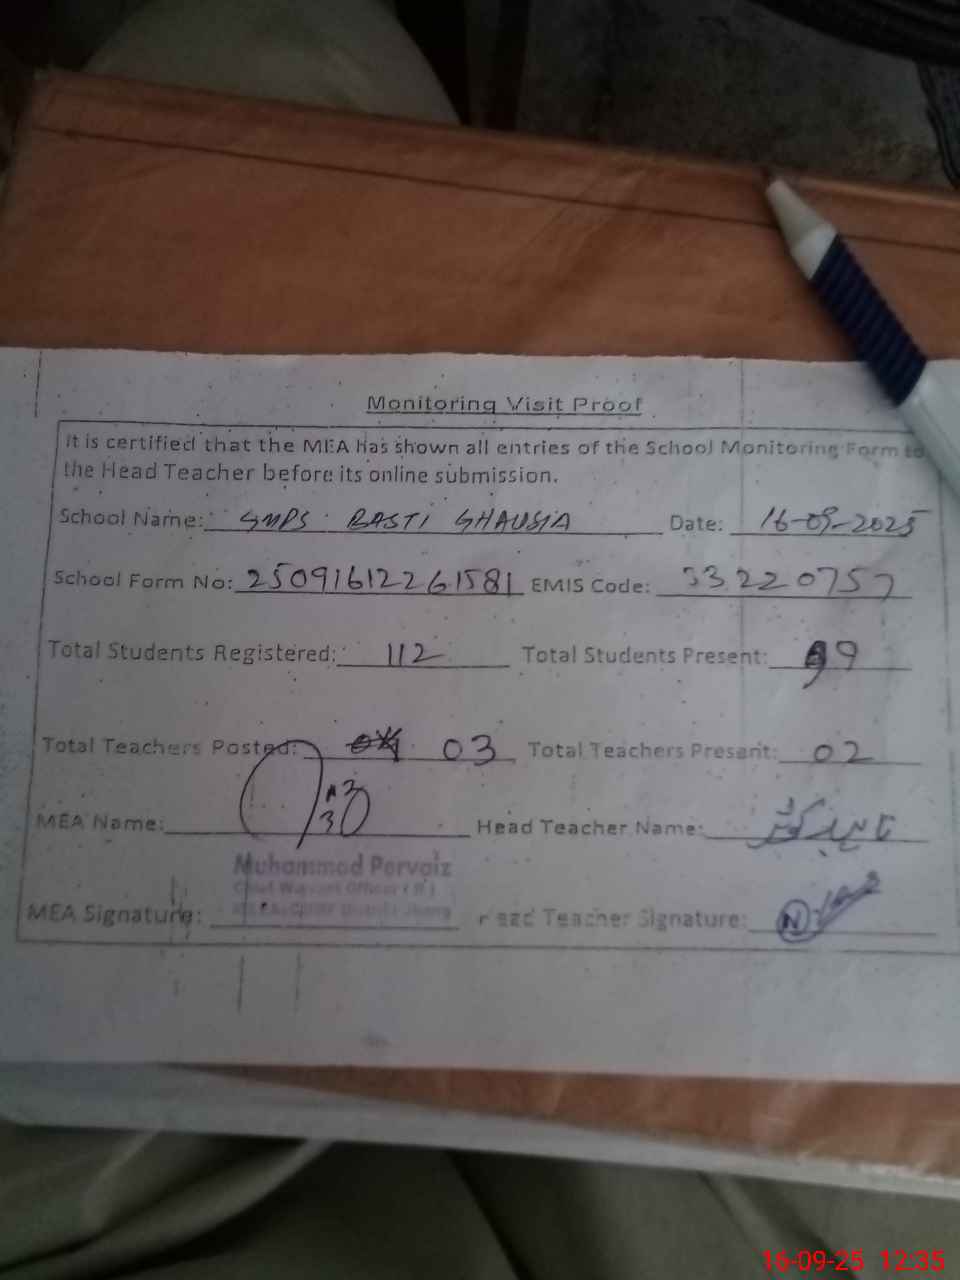 Monitoring Visit Proof
It is certified that the MEA has shown all entries of the School Monitoring Form to
the Head Teacher before its online submission.
School Name: GMPS BASTI GHAUSIA Date: 16-09-2025
School Form No: 25091612261581 EMIS Code: 33220757
Total Students Registered: 112 Total Students Present: 99
Total Teachers Posted: 03 Total Teachers Present: 02
MEA Name: Head Teacher Name:
Muhammad Pervaiz
MEA Signature: Head Teacher Signature:
16-09-25 12:35